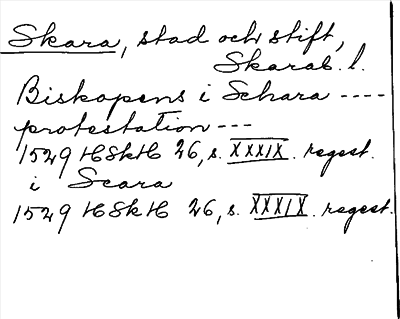 Skara, stad och stift,
Skarab. l.
Biskopens i Schara ----
protestation ---
1529 HSkH 26, s. XXXIX. regest.
i Scara
1529 HSkH 26, s. XXXIX. regest.